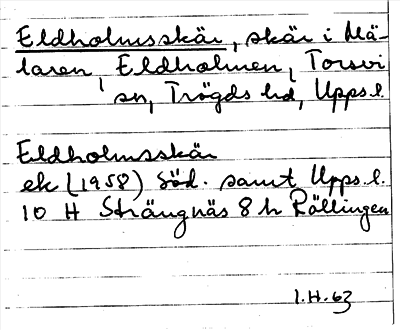 Eldholmsskär, skär i Mä-
laren, Eldholmen, Torsvi
sn, Trögds hd, Upps.l.
Eldholmsskär
ek (1958) Söd. samt Upps.l.
10 H Strängnäs 8 h Rällingen
I.H. 63